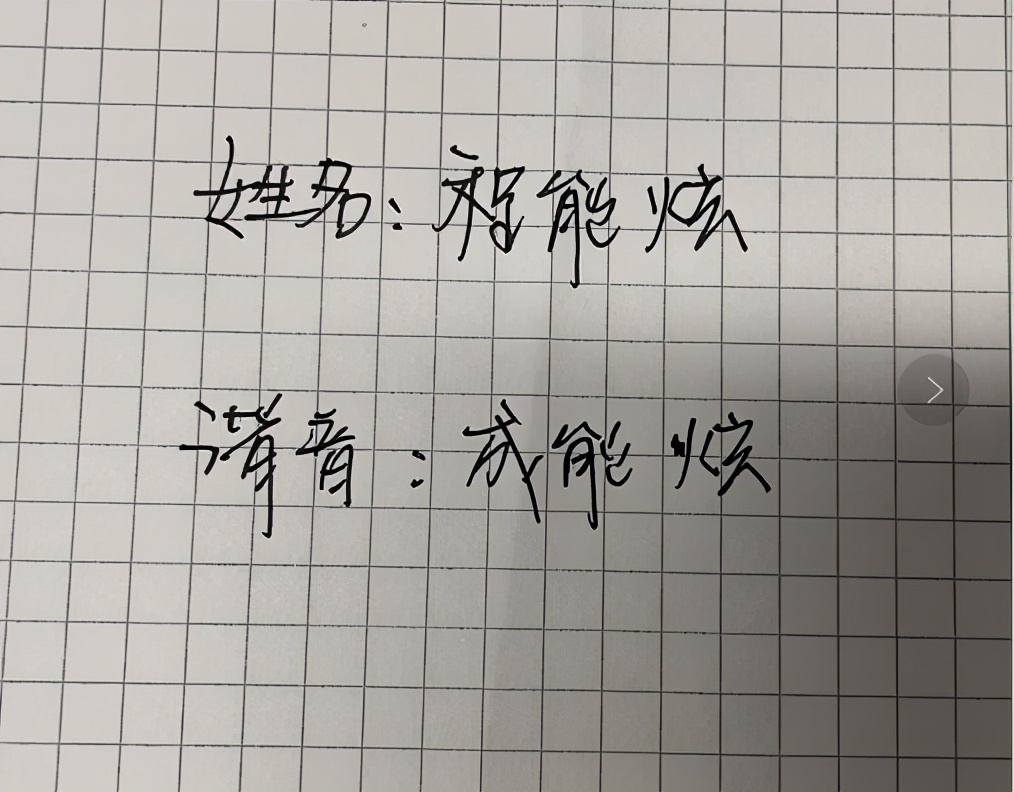 姓名：程能炫
谐音：成能炫